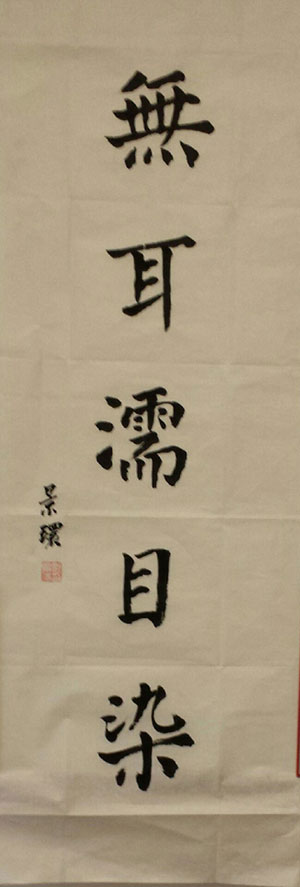 無耳濡目染
景環